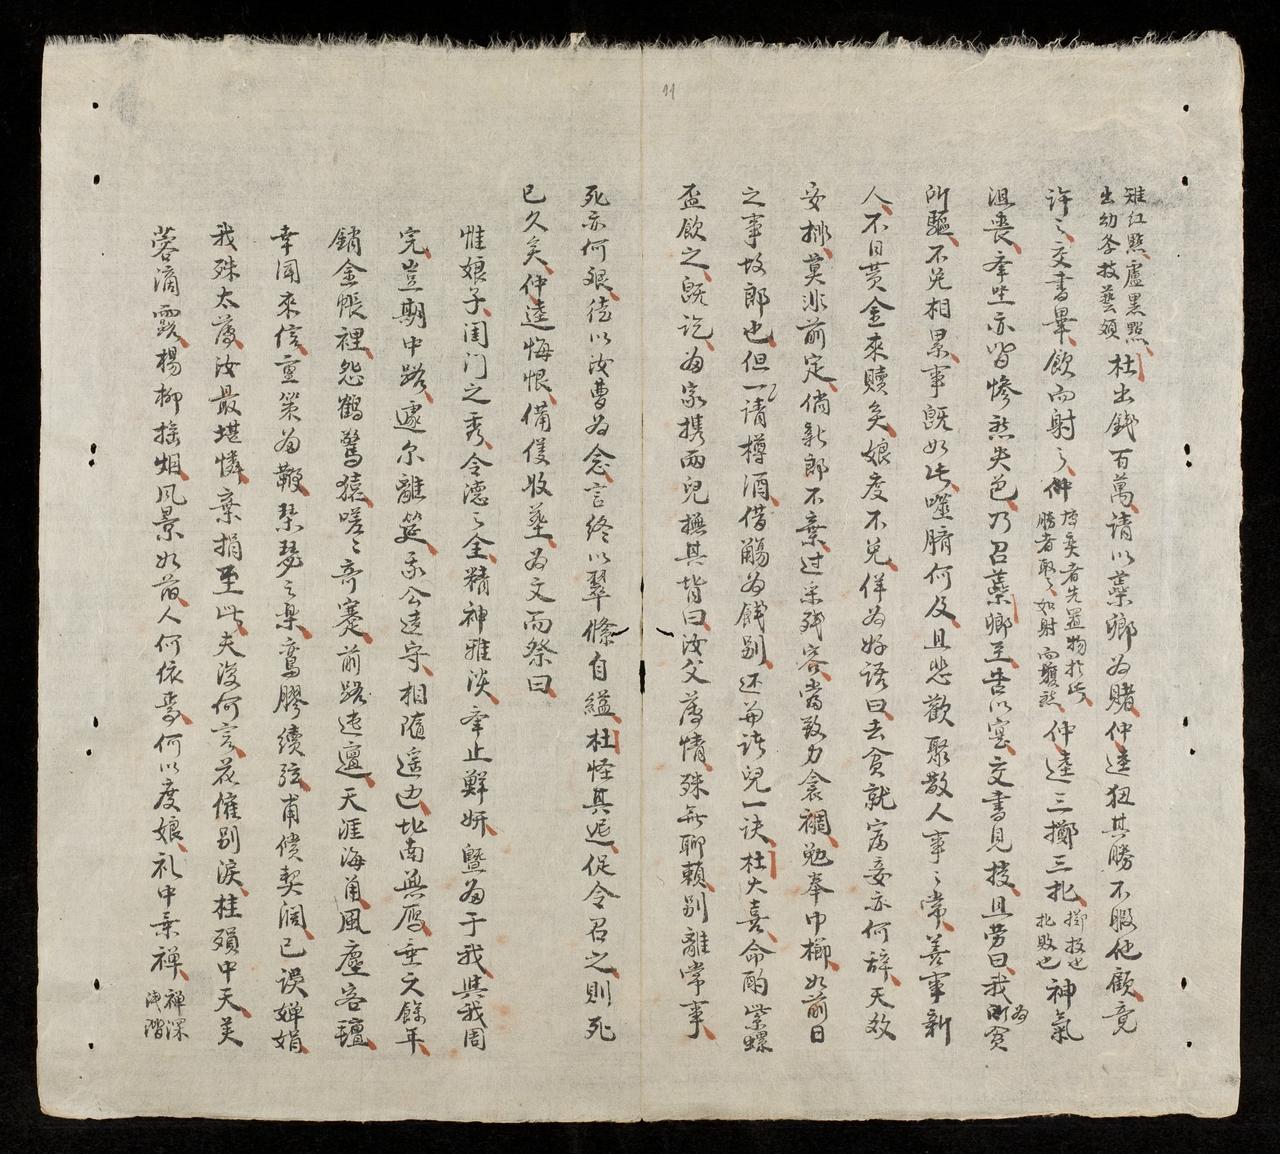 雉紅點盧黑點
出幼李技藝類
杜出錢百萬請以蘂卿為賭仲逵狃其勝不暇他顧竟
許之交書畢飲而射之仲
博奕者先置物於此
勝者取之如射而獲然
仲逵三擲三北
擲投也
北敗也
神氣
沮喪牽坐亦皆慘然失色乃召蘂卿至告以寔交書見投且勞曰我為貧
所驅不免相累事既如此噬臍何及且悲歡聚散人事之常善事新
人不日黃金來贖矣娘度不免佯為好語曰去貧就富妾亦何辭天效
安排莫非前定倘新郎不棄过采殘容當致力衾裯勉奉巾櫛如前日
之事故郎也但一請樽酒借觴為餞別还家訪兒一訣杜大喜命酌紫螺
盃飲之既訖為家携兩兒撫其背曰汝父薄情殊無聊賴別離常事
死亦何艱徒以汝曹為念言終以翠絛自縊杜怪其遲促令召之則死
已久矣仲逵悔恨備僅收塟為文而祭曰
惟娘子閨门之秀令德之全精神雅淡牽止鮮妍曁為于我與我周
完豈期中路遽尔離筵我今遠守相隨遥边北南無鴈垂六餘年
銷金帳裡怨鶴驚猿嗟之奇蹇前路迍邅天涯海角風塵客氊
幸聞來信重策為鞭琹瑟之樂鸞膠續弦甫償契濶已誤嬋娟
我殊太薄汝最堪憐棄捐至此夫復何言花催別淚桂殞中天芙
蓉滴露楊柳搖烟风景如前人何依焉何以度娘礼中乘禅
禅深
洩習